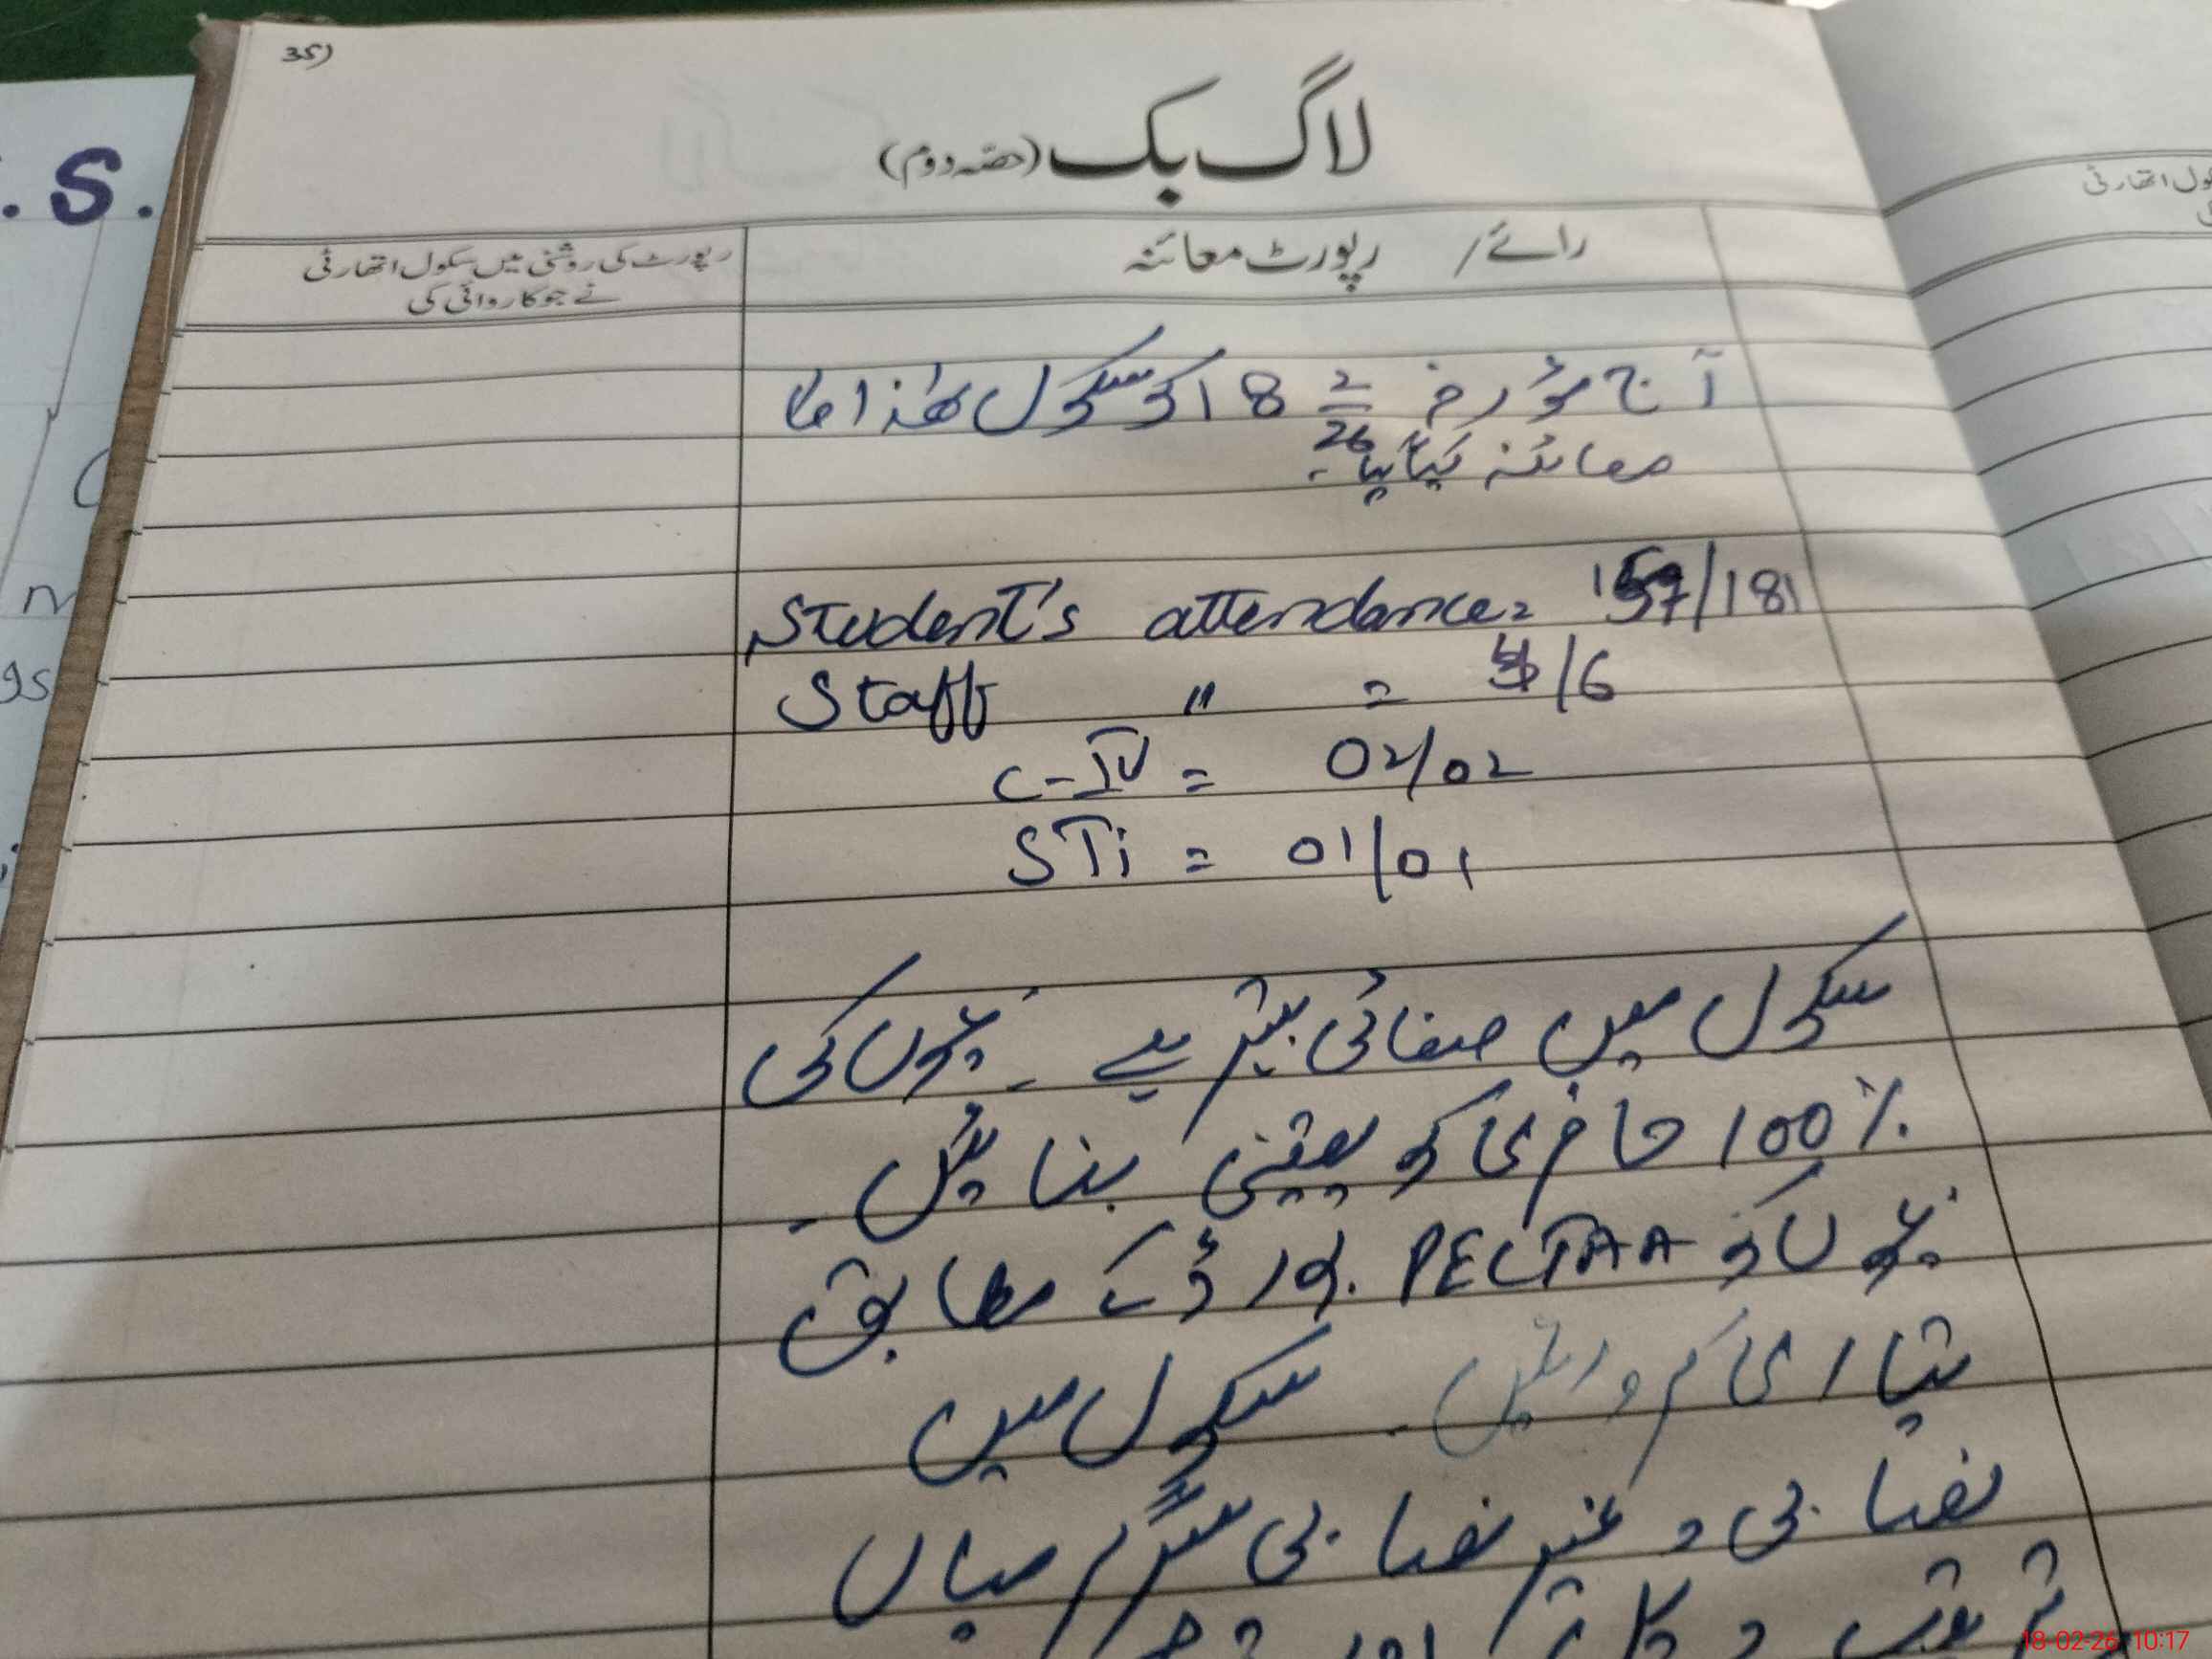 35)
لاگ بک (حصہ دوم)
رائے / رپورٹ معائنہ
رپورٹ کی روشنی میں سکول اتھارٹی
نے جو کاروائی کی
آج مؤرخہ 18 2/26 کو سکول ھٰذا کا
معائنہ کیا گیا۔
Student's attendance = 157/181
Staff " = /6
C-IV = 02/02
STi = 01/01
سکول میں صفائی بہتر ہے۔ بچوں کی
100% حاضری کو یقینی بنائیں۔
بچوں کو PECTAA بورڈ کے مطابق
تیاری کروائیں۔ سکول میں
نصابی و غیر نصابی سرگرمیاں
S.
18-02-26 10:17